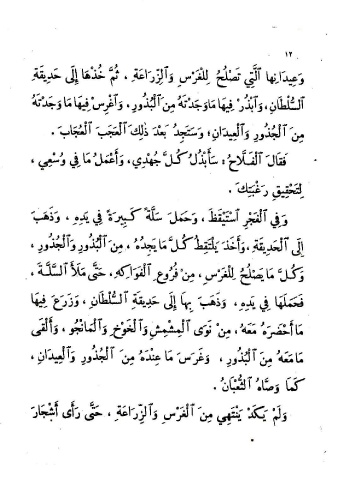 ١٢
وَعِيدَانِهَا ٱلَّتِي تَصْلُحُ لِلْغَرْسِ وَٱلزِّرَاعَةِ ، ثُمَّ خُذْهَا إِلَى حَدِيقَةِ
ٱلسُّلْطَانِ، وَٱبْذُرْ فِيهَا مَا وَجَدْتَهُ مِنَ ٱلْبُذُورِ، وَٱغْرِسْ فِيهَا مَا وَجَدْتَهُ
مِنَ ٱلْجُذُورِ وَٱلْعِيدَانِ؛ وَسَتَجِدُ بَعْدَ ذٰلِكَ ٱلْعَجَبَ ٱلْعُجَابَ .
فَقَالَ ٱلْفَلَّاحُ : سَأَبْذُلُ كُلَّ جُهْدِي، وَأَعْمَلُ مَا فِي وُسْعِي ،
لِتَحْقِيقِ رَغْبَتِكَ .
وَفِي ٱلْفَجْرِ ٱسْتَيْقَظَ ، وَحَمَلَ سَلَّةً كَبِيرَةً فِي يَدِهِ ، وَذَهَبَ
إِلَى ٱلْحَدِيقَةِ ، وَأَخَذَ يَلْتَقِطُ كُلَّ مَا يَجِدُهُ ، مِنَ ٱلْبُذُورِ وَٱلْجُذُورِ ،
وَكُلَّ مَا يَصْلُحُ لِلْغَرْسِ ، مِنْ فُرُوعِ ٱلْفَوَاكِهِ، حَتَّى مَلَأَ ٱلسَّلَّةَ ،
فَحَمَلَهَا فِي يَدِهِ، وَذَهَبَ بِهَا إِلَى حَدِيقَةِ ٱلسُّلْطَانِ، وَزَرَعَ فِيهَا
مَا أَحْضَرَهُ مَعَهُ، مِنْ نَوَى ٱلْمِشْمِشِ وَٱلْخَوْخِ وَٱلْمَانْجُو ، وَأَلْقَى
مَا مَعَهُ مِنَ ٱلْبُذُورِ ، وَغَرَسَ مَا عِنْدَهُ مِنَ ٱلْجُذُورِ وَٱلْعِيدَانِ ،
كَمَا وَصَّاهُ ٱلثُّعْبَانُ .
وَلَمْ يَكَدْ يَنْتَهِي مِنَ ٱلْغَرْسِ وَٱلزِّرَاعَةِ ، حَتَّى رَأَى أَشْجَارَ